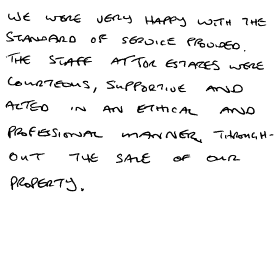 WE WERE VERY HAPPY WITH THE
STANDARD OF SERVICE PROVIDED.
THE STAFF AT TOR ESTATES WERE
COURTEOUS, SUPPORTIVE AND
ACTED IN AN ETHICAL AND
PROFESSIONAL MANNER, THROUGH-
OUT THE SALE OF OUR
PROPERTY.